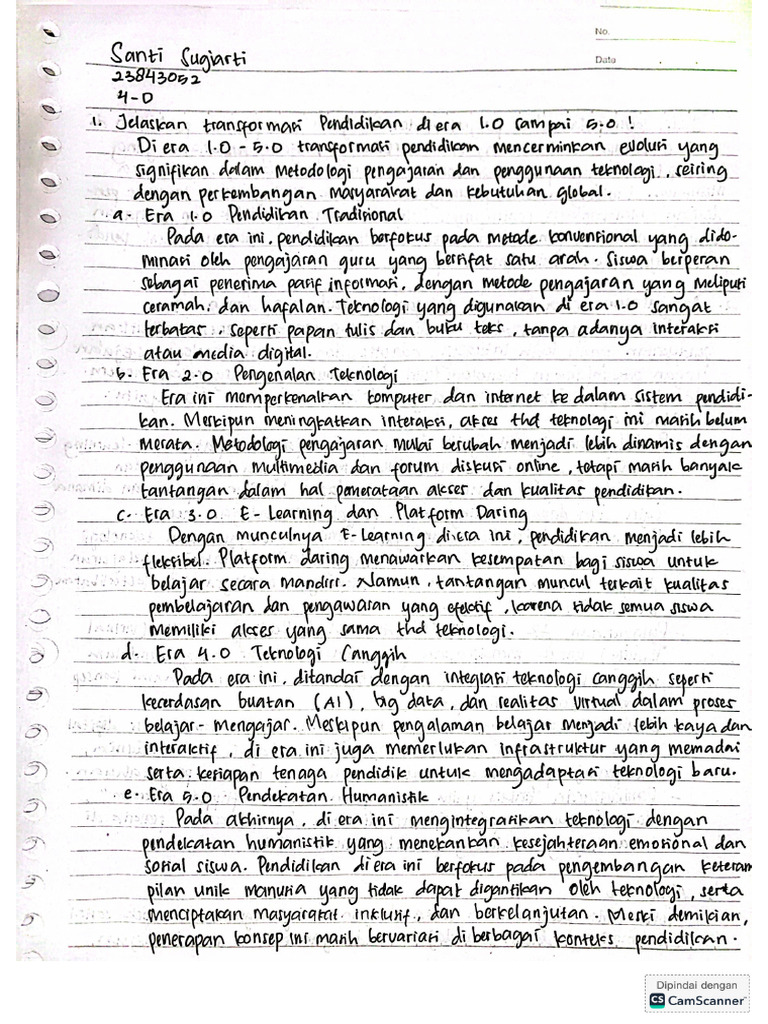 No.
Date
Santi Sugiarti
23843052
4-D
1. Jelaskan transformasi Pendidikan di era 1.0 sampai 5.0 !
Di era 1.0 - 5.0 transformasi pendidikan mencerminkan evolusi yang
signifikan dalam metodologi pengajaran dan penggunaan teknologi, seiring
dengan perkembangan masyarakat dan kebutuhan global.
a. Era 1.0 Pendidikan Tradisional
Pada era ini, pendidikan berfokus pada metode konvensional yang dido-
minasi oleh pengajaran guru yang bersifat satu arah. Siswa berperan
sebagai penerima pasif informasi, dengan metode pengajaran yang meliputi
ceramah, dan hafalan. Teknologi yang digunakan di era 1.0 sangat
terbatas, seperti papan tulis dan buku teks, tanpa adanya interaksi
atau media digital.
b. Era 2.0 Pengenalan Teknologi
Era ini memperkenalkan komputer dan internet ke dalam sistem pendidi-
kan. Meskipun meningkatkan interaksi, akses thd teknologi ini masih belum
merata. Metodologi pengajaran mulai berubah menjadi lebih dinamis dengan
penggunaan multimedia dan forum diskusi online, tetapi masih banyak
tantangan dalam hal pemerataan akses dan kualitas pendidikan.
c. Era 3.0 E-Learning dan Platform Daring
Dengan munculnya E-Learning di era ini, pendidikan menjadi lebih
fleksibel. Platform daring menawarkan kesempatan bagi siswa untuk
belajar secara mandiri. Namun, tantangan muncul terkait kualitas
pembelajaran dan pengawasan yang efektif, karena tidak semua siswa
memiliki akses yang sama thd teknologi.
d. Era 4.0 Teknologi Canggih
Pada era ini, ditandai dengan integrasi teknologi canggih seperti
kecerdasan buatan (AI), big data, dan realitas virtual dalam proses
belajar-mengajar. Meskipun pengalaman belajar menjadi lebih kaya dan
interaktif, di era ini juga memerlukan infrastruktur yang memadai
serta kesiapan tenaga pendidik untuk mengadaptasi teknologi baru.
e. Era 5.0 Pendekatan Humanistik
Pada akhirnya, di era ini mengintegrasikan teknologi dengan
pendekatan humanistik yang menekankan kesejahteraan emosional dan
sosial siswa. Pendidikan di era ini berfokus pada pengembangan keteram
pilan unik manusia yang tidak dapat digantikan oleh teknologi, serta
menciptakan masyarakat inklusif, dan berkelanjutan. Meski demikian,
penerapan konsep ini masih bervariasi di berbagai konteks pendidikan.
Dipindai dengan
CS CamScanner